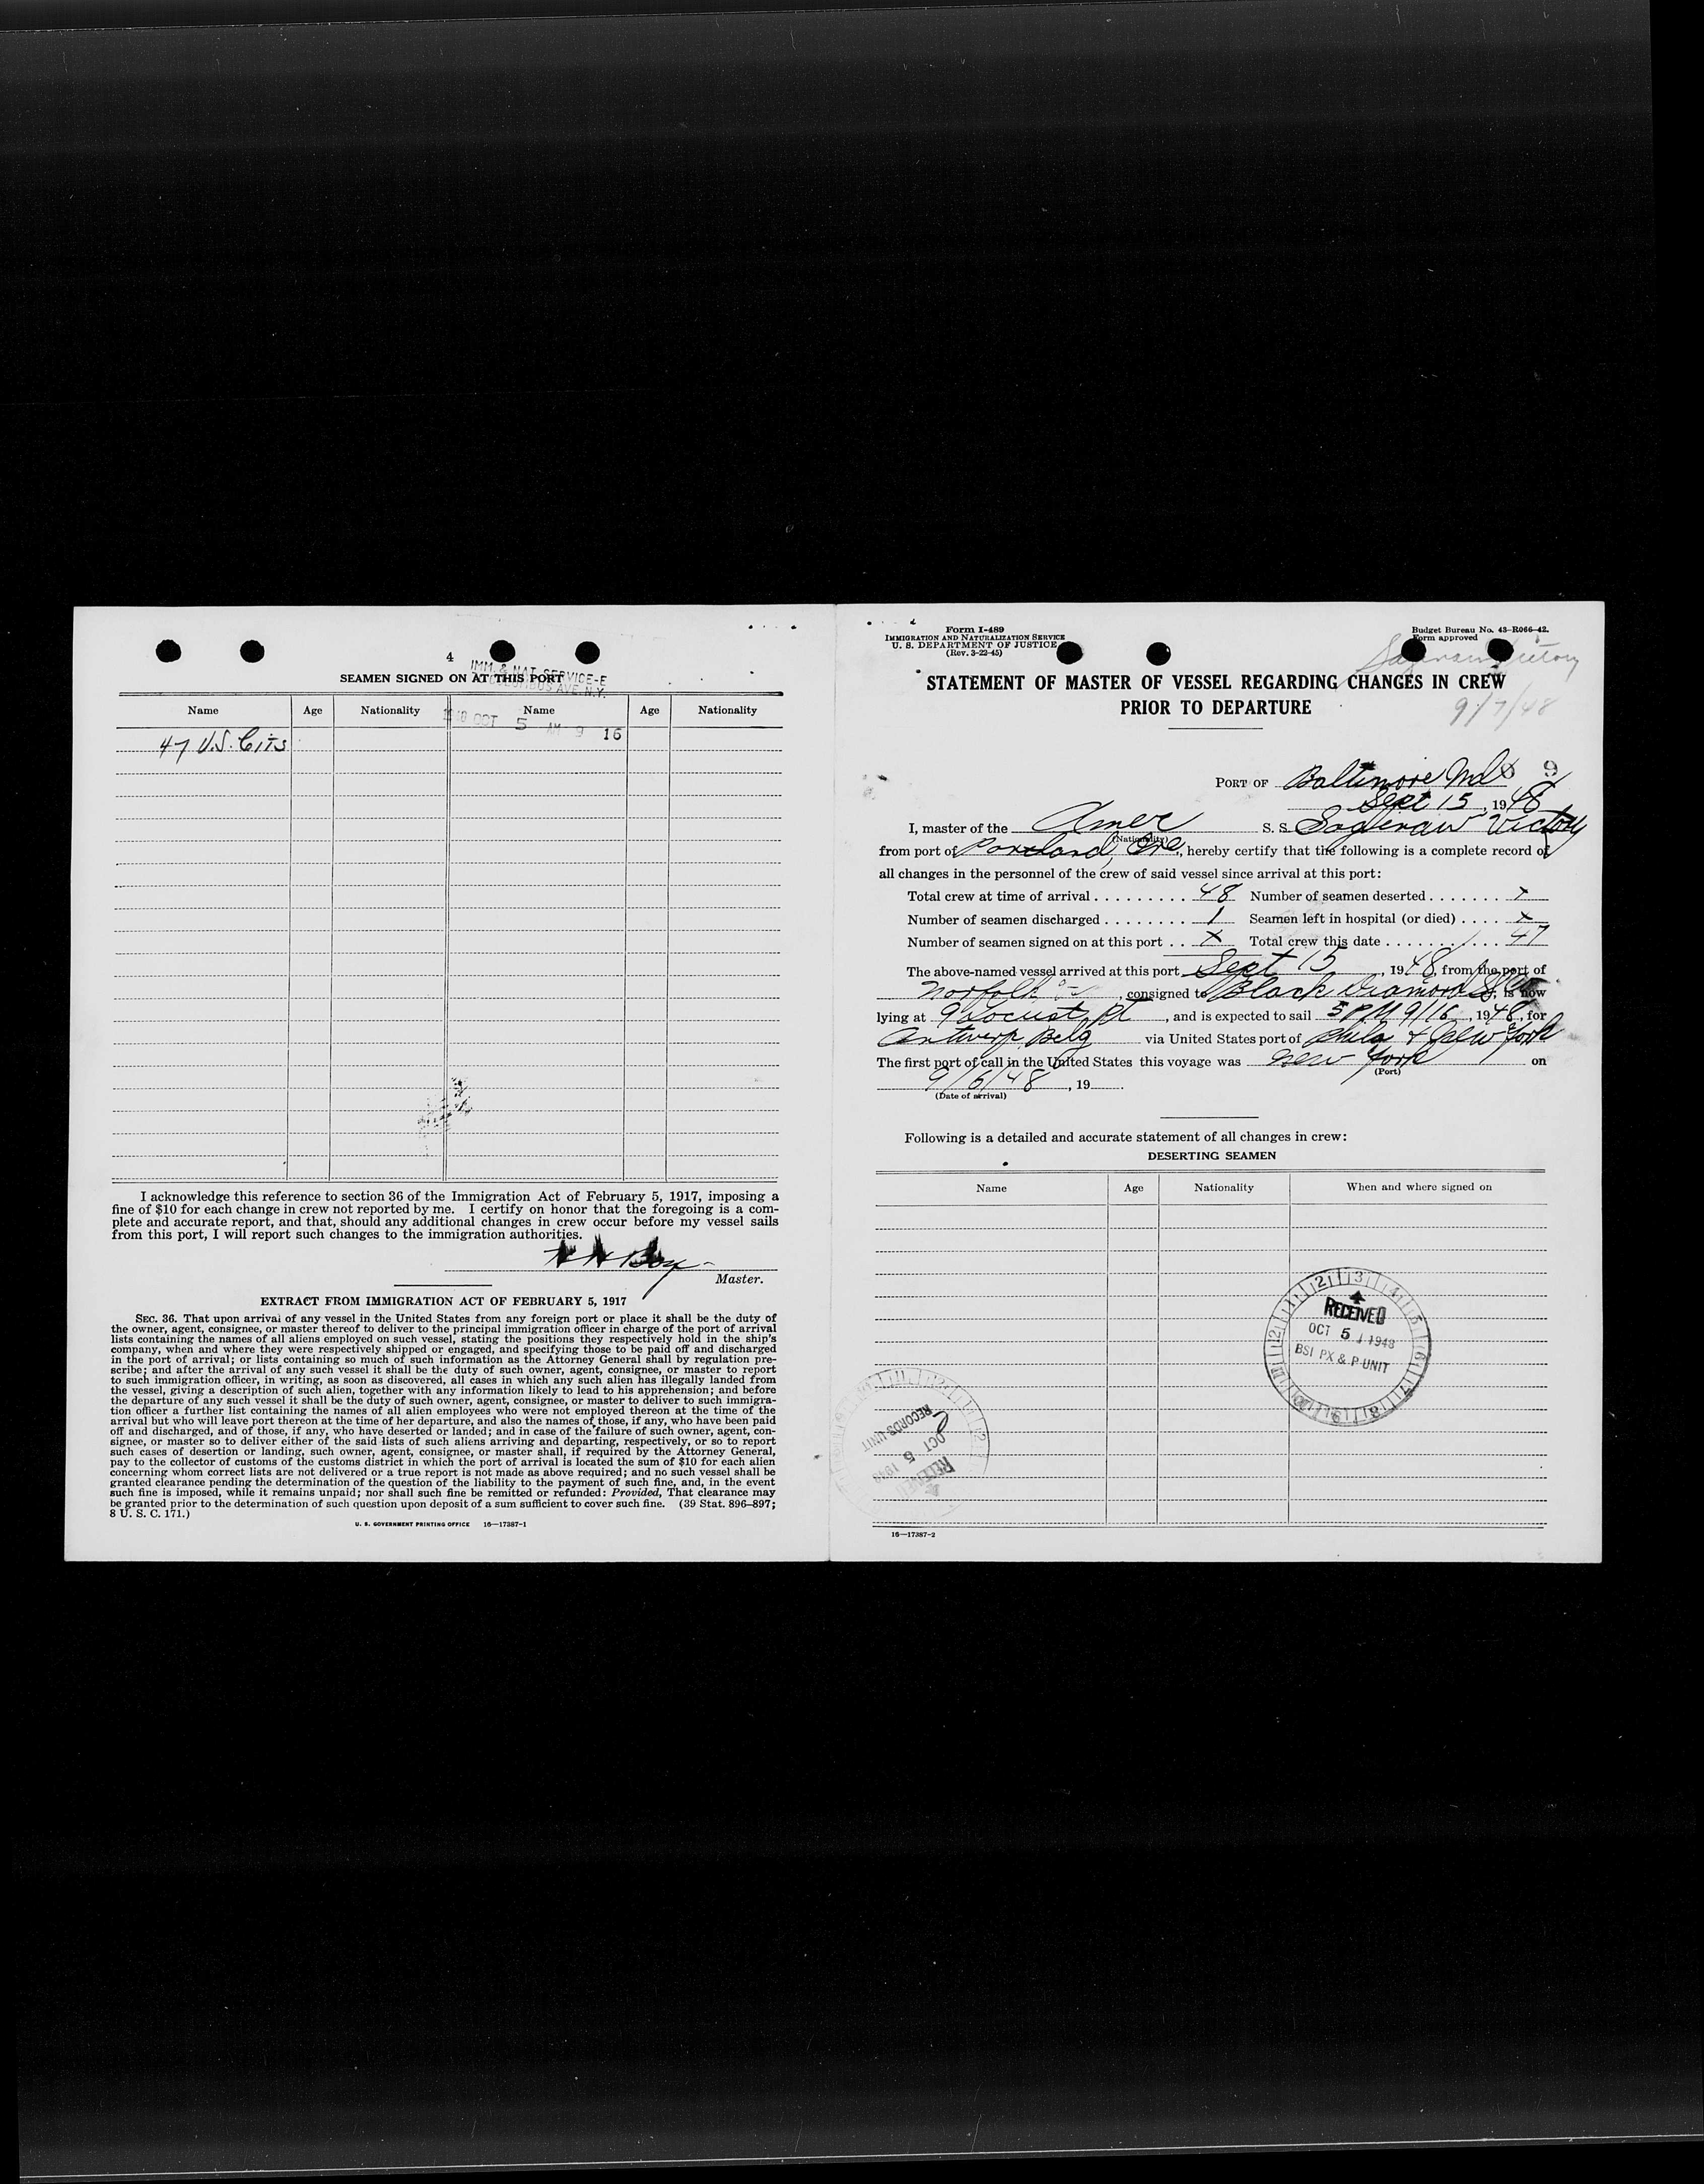 4
IMM. & NAT. SERVICE-E
COLUMBUS AVE. N.Y.
SEAMEN SIGNED ON AT THIS PORT
Name Age Nationality Name Age Nationality
OCT 5 AM 9 16
47 U.S. Cits
I acknowledge this reference to section 36 of the Immigration Act of February 5, 1917, imposing a
fine of $10 for each change in crew not reported by me. I certify on honor that the foregoing is a com-
plete and accurate report, and that, should any additional changes in crew occur before my vessel sails
from this port, I will report such changes to the immigration authorities.
Master.
EXTRACT FROM IMMIGRATION ACT OF FEBRUARY 5, 1917
SEC. 36. That upon arrival of any vessel in the United States from any foreign port or place it shall be the duty of
the owner, agent, consignee, or master thereof to deliver to the principal immigration officer in charge of the port of arrival
lists containing the names of all aliens employed on such vessel, stating the positions they respectively hold in the ship's
company, when and where they were respectively shipped or engaged, and specifying those to be paid off and discharged
in the port of arrival; or lists containing so much of such information as the Attorney General shall by regulation pre-
scribe; and after the arrival of any such vessel it shall be the duty of such owner, agent, consignee, or master to report
to such immigration officer, in writing, as soon as discovered, all cases in which any such alien has illegally landed from
the vessel, giving a description of such alien, together with any information likely to lead to his apprehension; and before
the departure of any such vessel it shall be the duty of such owner, agent, consignee, or master to deliver to such immigra-
tion officer a further list containing the names of all alien employees who were not employed thereon at the time of the
arrival but who will leave port thereon at the time of her departure, and also the names of those, if any, who have been paid
off and discharged, and of those, if any, who have deserted or landed; and in case of the failure of such owner, agent, con-
signee, or master so to deliver either of the said lists of such aliens arriving and departing, respectively, or so to report
such cases of desertion or landing, such owner, agent, consignee, or master shall, if required by the Attorney General,
pay to the collector of customs of the customs district in which the port of arrival is located the sum of $10 for each alien
concerning whom correct lists are not delivered or a true report is not made as above required; and no such vessel shall be
granted clearance pending the determination of the question of the liability to the payment of such fine, and, in the event
such fine is imposed, while it remains unpaid; nor shall such fine be remitted or refunded: Provided, That clearance may
be granted prior to the determination of such question upon deposit of a sum sufficient to cover such fine. (39 Stat. 896-897;
8 U. S. C. 171.)
U. S. GOVERNMENT PRINTING OFFICE 16—17387-1
Form I-489
IMMIGRATION AND NATURALIZATION SERVICE
U. S. DEPARTMENT OF JUSTICE
(Rev. 3-22-45)
Budget Bureau No. 43-R066-42.
Form approved
Saginaw Victory
STATEMENT OF MASTER OF VESSEL REGARDING CHANGES IN CREW
PRIOR TO DEPARTURE
9/7/48
9
PORT OF Baltimore Md
Sept 15, 1948
I, master of the Amer S. S. Saginaw Victory
(Nationality)
from port of Portland, Ore, hereby certify that the following is a complete record of
all changes in the personnel of the crew of said vessel since arrival at this port:
Total crew at time of arrival 48 Number of seamen deserted x
Number of seamen discharged 1 Seamen left in hospital (or died) x
Number of seamen signed on at this port X Total crew this date 47
The above-named vessel arrived at this port Sept 15, 1948, from the port of
Norfolk, consigned to Black Diamond SS Co, is now
lying at 9 Locust Pt, and is expected to sail 5 PM 9/16, 1948, for
Antwerp Belg via United States port of Phila & New York
The first port of call in the United States this voyage was New York on
(Port)
9/6/48, 19
(Date of arrival)
Following is a detailed and accurate statement of all changes in crew:
DESERTING SEAMEN
Name Age Nationality When and where signed on
RECEIVED
OCT 5 1948
BSI PX & P UNIT
RECORDS UNIT
OCT 5 1948
RECEIVED
16—17387-2